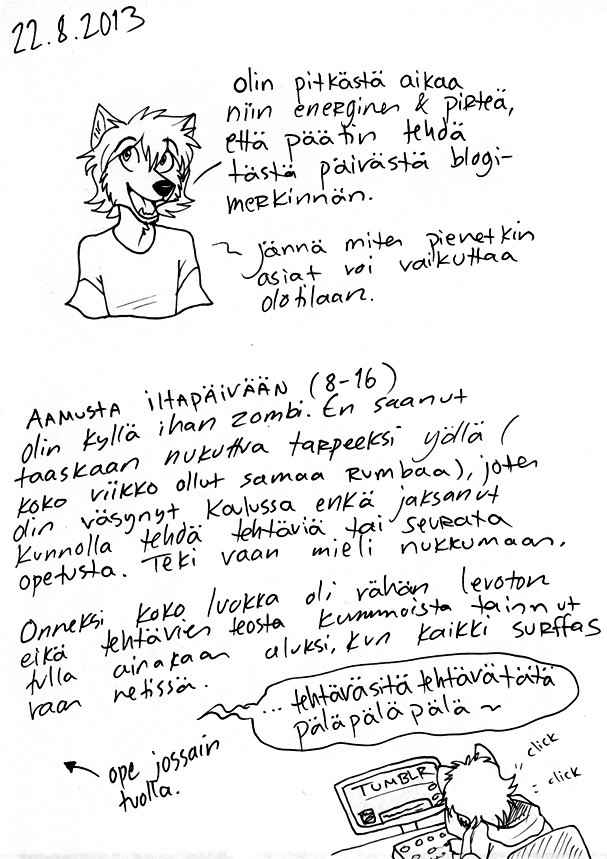 22.8.2013
olin pitkästä aikaa
niin energinen & pirteä,
että päätin tehdä
tästä päivästä blogi-
merkinnän.
~ jännä miten pienetkin
asiat voi vaikuttaa
olotilaan.
AAMUSTA iltapäivään (8-16)
olin kyllä ihan zombi. En saanut
taaskaan nukuttua tarpeeksi yöllä (
koko viikko ollut samaa rumbaa), joten
olin väsynyt koulussa enkä jaksanut
kunnolla tehdä tehtäviä tai seurata
opetusta. Teki vaan mieli nukkumaan.
Onneksi koko luokka oli vähän levoton
eikä tehtävien teosta kummoista tainnut
tulla ainakaan aluksi, kun kaikki surffas
vaan netissä.
... tehtäväsitä tehtävätätä
päläpäläpälä ~
ope jossain
tuolla.
TUMBLR
click
click